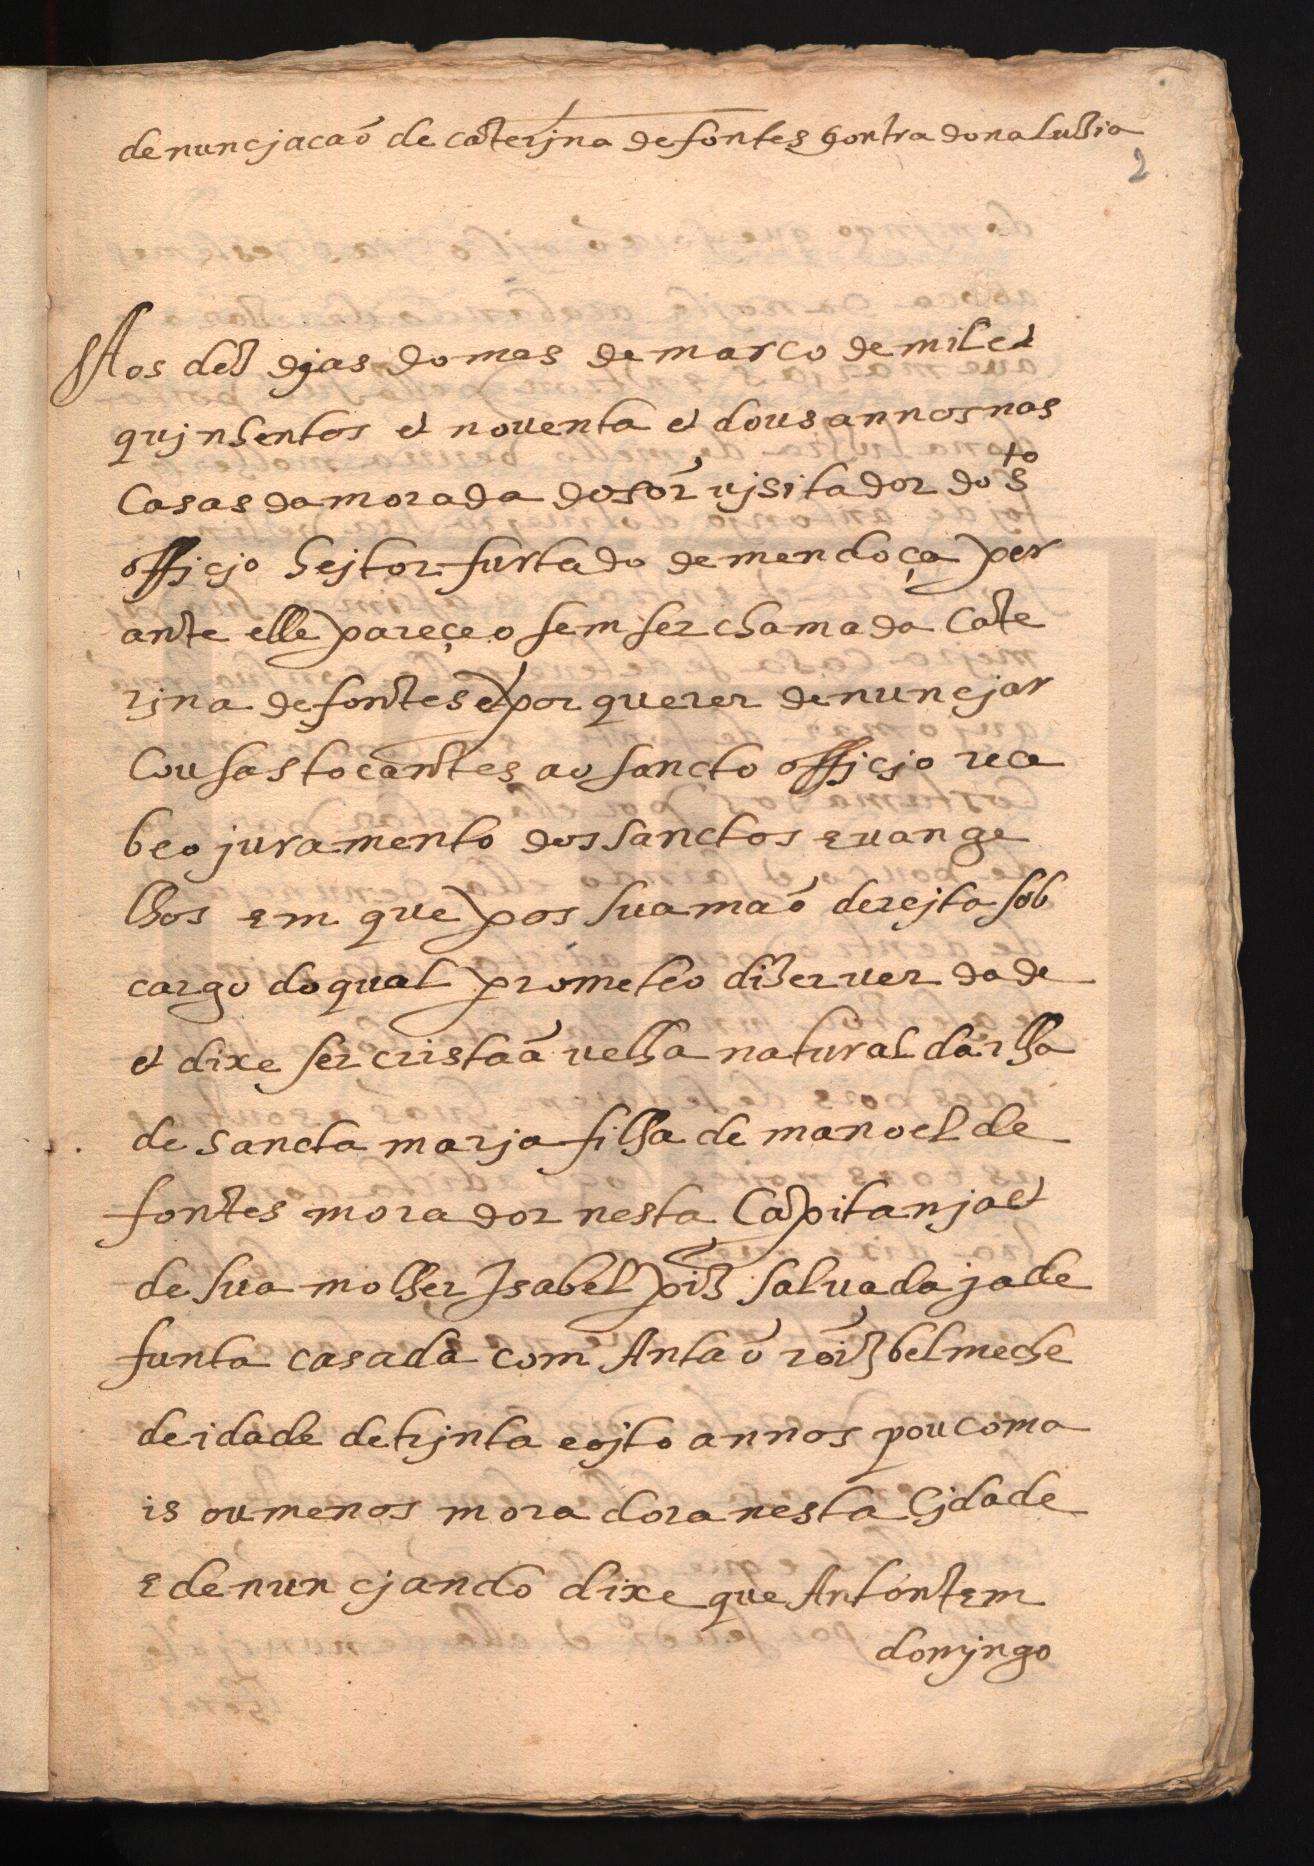 denunçjacaõ de Caterjna de fontes Contra dona lusia
2
Aos dez djas do mes de março de mil et
qujnhentos et nouenta et dous annos nas
casas da morada do sõr ujsitador do s.to
officjo heitor furtado de mendoça per
ante elle pareçeo sem ser chamada Cate
rjna de fontes e por querer denuncjar
Cousas tocantes ao sancto officjo rece
beo juramento dos sanctos euange
lhos em que pos sua maõ derejta sob
cargo do qual prometeo dizer uerdade
et dixe ser cristaã uelha natural da ilha
de sancta marja filha de manoel de
fontes morador nesta Capitanja et
de sua molher Isabel piz saluada ja de
funta casada com Antaõ roiz belmeche
de idade de trjnta e ojto annos pouco ma
is ou menos moradora nesta Cjdade
E denuncjando dixe que Antontem
domjngo